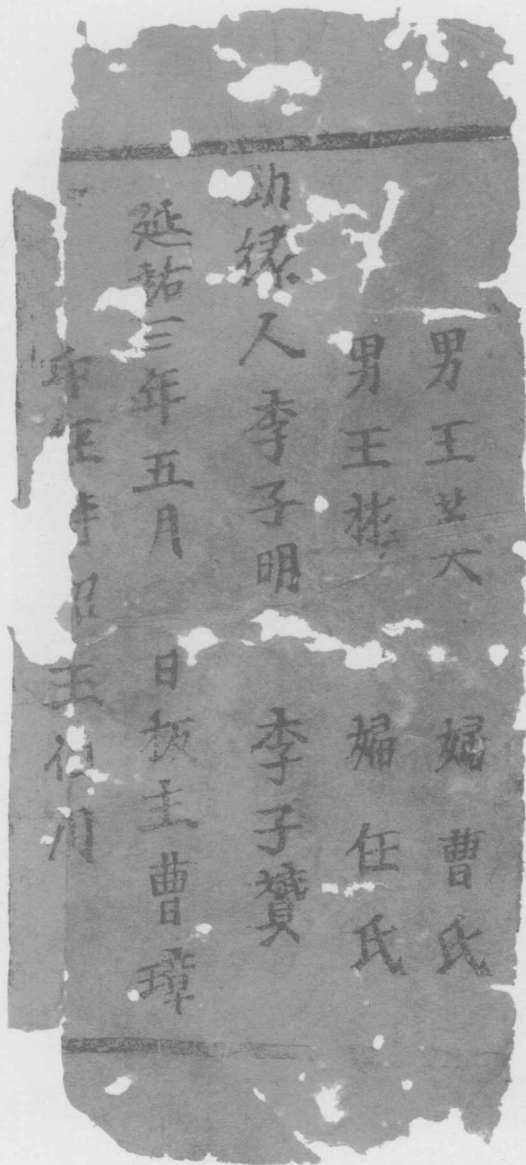 男王 婦曹氏
男王 婦任氏
助緣人李子明 李子贇
延祐三年五月 日板主曹璋
印經 王